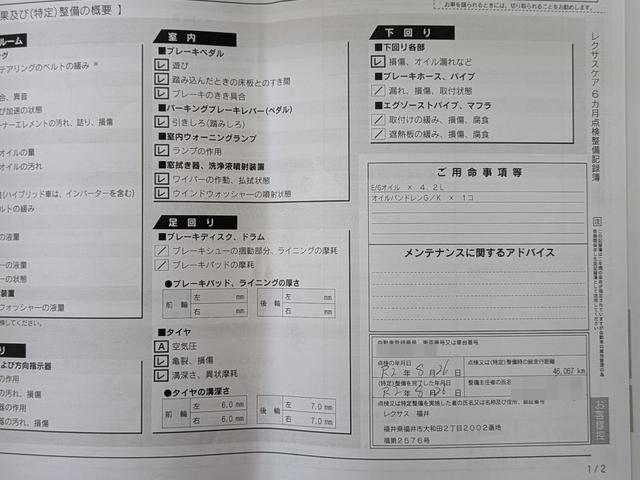 お車を譲られるときには、切り取られることをお勧めします。
果及び(特定)整備の概要 】
ルーム
テアリングのベルトの緩み ※
合、異音
び加速の状態
ーナーエレメントの汚れ、詰り、損傷
オイルの量
オイルの汚れ
(ハイブリッド車は、インバーターを含む)
ベルトの緩み
の液量
ーの液量
ーの状態
装置
ウォッシャーの液量
換してください。
り
および方向指示器
の作用
の汚れ、損傷
器の作用
器の汚れ、損傷
室 内
■ブレーキペダル
レ 遊び
レ 踏み込んだときの床板とのすき間
レ ブレーキのきき具合
■パーキングブレーキレバー(ペダル)
レ 引きしろ(踏みしろ)
■室内ウォーニングランプ
レ ランプの作用
■窓拭き器、洗浄液噴射装置
レ ワイパーの作動、払拭状態
レ ウインドウォッシャーの噴射状態
足 回 り
■ブレーキディスク、ドラム
／ ブレーキシューの摺動部分、ライニングの摩耗
／ ブレーキパッドの摩耗
●ブレーキパッド、ライニングの厚さ
前 輪 左 mm 後 輪 左 mm
右 mm 右 mm
■タイヤ
A 空気圧
レ 亀裂、損傷
レ 溝深さ、異状摩耗
●タイヤの溝深さ
前 輪 左 6.0 mm 後 輪 左 7.0 mm
右 6.0 mm 右 7.0 mm
下 回 り
■下回り各部
レ 損傷、オイル漏れなど
■ブレーキホース、パイプ
／ 漏れ、損傷、取付状態
■エグゾーストパイプ、マフラ
／ 取付けの緩み、損傷、腐食
／ 遮熱板の緩み、損傷、腐食
ご 用 命 事 項 等
E/Gオイル × 4.2L
オイルパンドレンG/K × 1コ
メンテナンスに関するアドバイス
自動車登録番号、車両番号又は車台番号
点検の年月日
R2 年 8 月 26 日
点検又は(特定)整備時の総走行距離
46,067 km
(特定)整備を完了した年月日
R2 年 8 月 26 日
整備主任者の氏名
点検又は特定整備を実施した者の氏名又は名称及び住所、認証番号
レクサス 福井
福井県福井市大和田2丁目2002番地
福第2576号
レクサスケア6カ月点検整備記録簿
お客様控
1/2